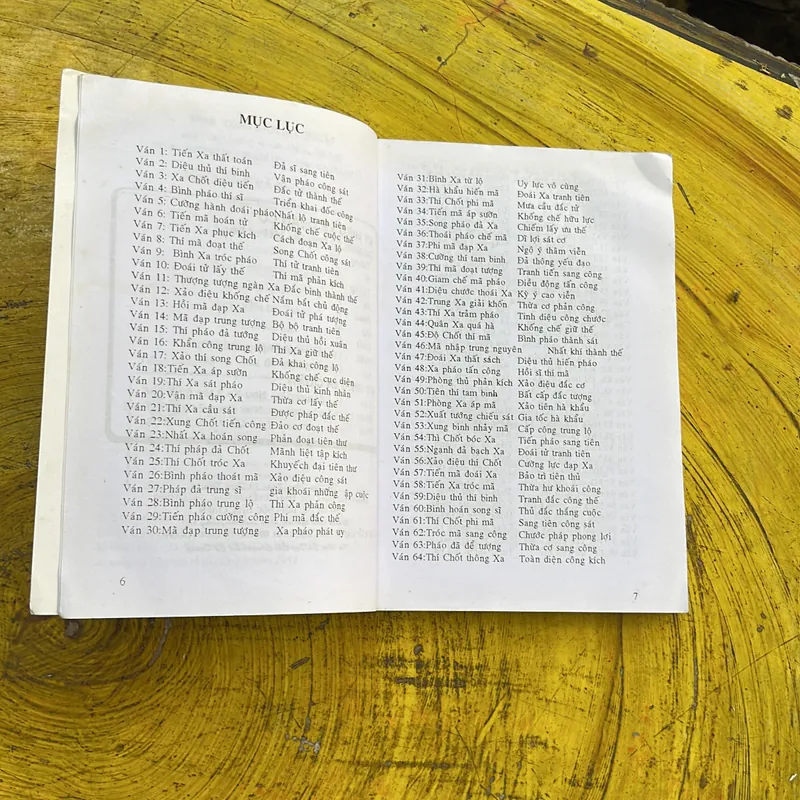 MỤC LỤC
Ván 1: Tiến Xa thất toán Đả sĩ sang tiên
Ván 2: Diệu thủ thí binh Vận pháo công sát
Ván 3: Xa Chốt diệu tiến Đắc tử thành thế
Ván 4: Bình pháo thí sĩ Triển khai đốc công
Ván 5: Cường hành đoái pháo Nhất lộ tranh tiên
Ván 6: Tiến mã hoán tử Khống chế cuộc thế
Ván 7: Tiến Xa phục kích Cách đoạn Xa lộ
Ván 8: Thí mã đoạt thế Song Chốt công sát
Ván 9: Bình Xa tróc pháo Thí tử tranh tiên
Ván 10: Đoái tử lấy thế Thí mã phản kích
Ván 11: Thượng tượng ngàn Xa Đắc binh thành thế
Ván 12: Xảo điệu khống chế Nắm bắt chủ động
Ván 13: Hồi mã đạp Xa Đoái tử phá tượng
Ván 14: Mã đạp trung tượng Bộ bộ tranh tiên
Ván 15: Thí pháo đả tướng Diệu thủ hồi xuân
Ván 16: Khẩn công trung lộ Thí Xa giữ thế
Ván 17: Xảo thí song Chốt Đả khai công lộ
Ván 18: Tiến Xa áp sườn Khống chế cục diện
Ván 19: Thí Xa sát pháo Diệu thủ kinh nhân
Ván 20: Vận mã đạp Xa Thừa cơ lấy thế
Ván 21: Thí Xa cầu sát Được pháp đắc thế
Ván 22: Xung Chốt tiến công Đảo cơ đoạt thế
Ván 23: Nhất Xa hoán song Phản đoạn tiên thư
Ván 24: Thí pháp đả Chốt Mãnh liệt tập kích
Ván 25: Thí Chốt tróc Xa Khuyếch đại tiên thư
Ván 26: Bình pháo thoát mã Xảo điệu công sát
Ván 27: Pháp đả trung sĩ gia khoái những ập cuộc
Ván 28: Bình pháo trung lộ Thí Xa phản công
Ván 29: Tiến pháo cường công Phi mã đắc thế
Ván 30: Mã đạp trung tượng Xa pháo phát uy
6
Ván 31: Bình Xa từ lộ Uy lực vô cùng
Ván 32: Hà khẩu hiến mã Đoái Xa tranh tiên
Ván 33: Thí Chốt phi mã Mưa cầu đắc tử
Ván 34: Tiến mã áp sườn Khống chế hữu lực
Ván 35: Song pháo đả Xa Chiếm lấy ưu thế
Ván 36: Thoái pháo chế mã Dĩ lợi sát cơ
Ván 37: Phi mã đạp Xa Ngộ ý thâm viễn
Ván 38: Cường thí tam binh Đả thông yếu đạo
Ván 39: Thí mã đoạt tượng Tranh tiên sang công
Ván 40: Giam chế mã pháo Diều động tấn công
Ván 41: Diệu chước thoái Xa Kỳ ý cao viễn
Ván 42: Trung Xa giải khốn Thừa cơ phản công
Ván 43: Thí Xa trảm pháo Tinh diệu công chước
Ván 44: Quân Xa quá hà Khống chế giữ thế
Ván 45: Độ Chốt thí mã Bình pháo thành sát
Ván 46: Mã nhập trung nguyên Nhất khí thành thế
Ván 47: Đoái Xa thất sách Diệu thủ hiến pháo
Ván 48: Xa pháo tấn công Hồi sĩ thí mã
Ván 49: Phòng thủ phản kích Xảo điệu đắc cơ
Ván 50: Tiên thí tam binh Bất cấp đắc tượng
Ván 51: Phòng Xa áp mã Xảo tiên hà khẩu
Ván 52: Xuất tướng chiếu sát Gia tốc hà khẩu
Ván 53: Xung binh nhảy mã Cấp công trung lộ
Ván 54: Thí Chốt bóc Xa Tiến pháo sang tiên
Ván 55: Nganh đả bạch Xa Đoái tử tranh tiên
Ván 56: Xảo điệu thí Chốt Cường lực đạp Xa
Ván 57: Tiến mã đoái Xa Bảo trì tiên thủ
Ván 58: Tiến Xa tróc mã Thừa hư khoái công
Ván 59: Diệu thủ thí binh Tranh đắc công thế
Ván 60: Bình hoán song sĩ Thủ đắc thắng cuộc
Ván 61: Thí Chốt phi mã Sang tiên công sát
Ván 62: Tróc mã sang công Chước pháp phong lợi
Ván 63: Pháo đã để tượng Thừa cơ sang công
Ván 64: Thí Chốt thông Xa Toàn diện công kích
7